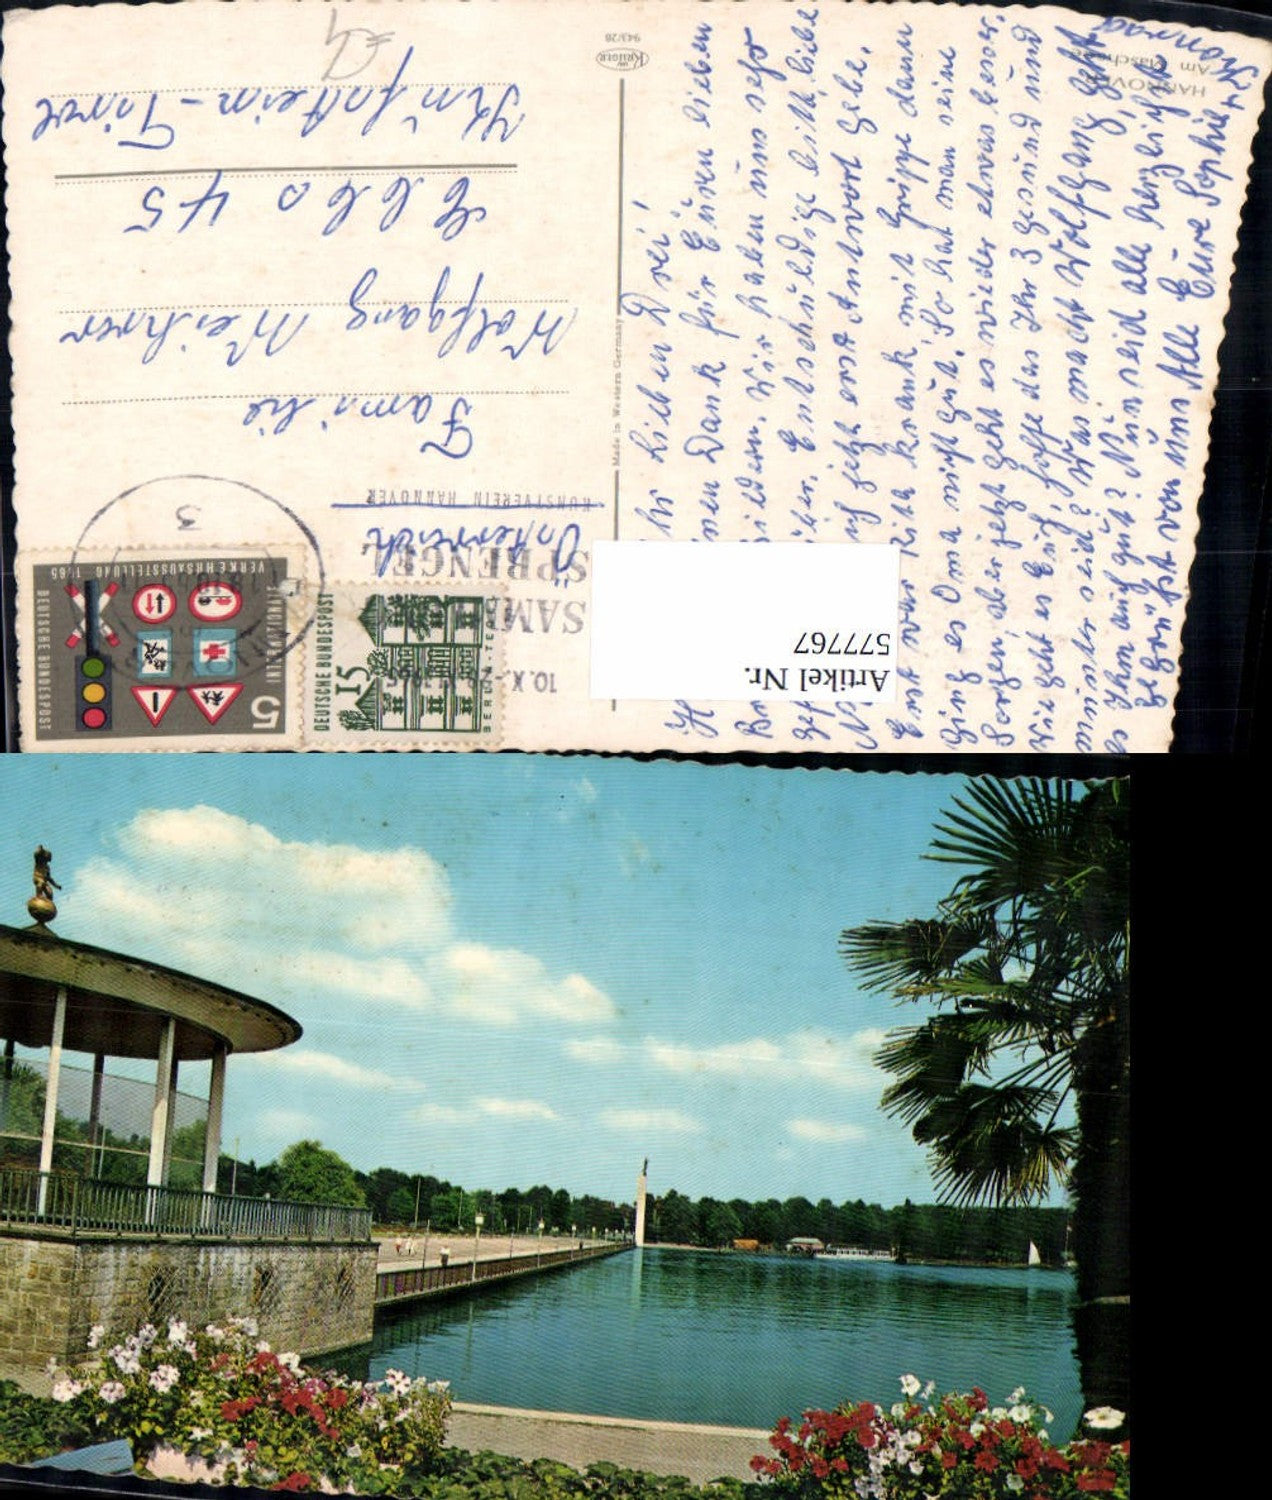 HANNOVER
Am Maschsee
Ihr Lieben Drei,
nen Dank für Euren lieben
Bildern. Wir haben uns sehr
Entschuldige bitte liebe
ich jetzt erst Antwort gebe.
Erst war Rita krank mit Grippe dann
ging es Oma nicht gut. So hat man seine
Sorgen, aber jetzt geht es wieder etwas besser.
Wie geht es Euch, hoffe das Ihr 3 gesund und
munter seid? Was macht Wolfgang, geht
es Ihm auch gut? Nun seid alle herzlichst
gegrüßt von uns Alle Eure Sophie
Konrad
KRÜGER
943/28
Made in Western Germany
KUNSTVEREIN HANNOVER
SPRENGEL
10.X.-
3
Österreich.
Familie
Wolfgang Meixner
Ebbs 45
Kufstein-Tirol
DEUTSCHE BUNDESPOST
15
BERLIN-TEGEL
5
VERKEHRSAUSSTELLUNG 1965
DEUTSCHE BUNDESPOST
Artikel Nr.
577767